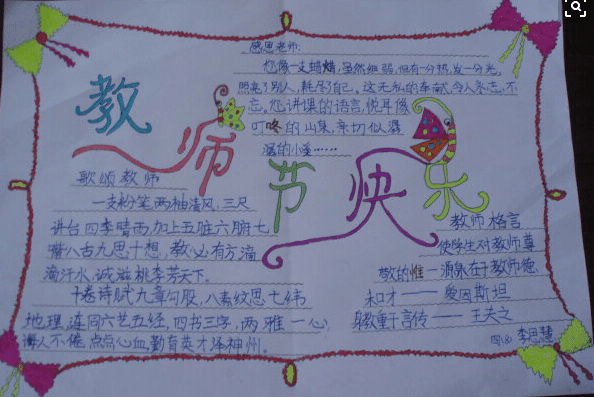 教师节快乐
感恩老师:
您像一支蜡烛,虽然细弱,但有一分热,发一分光,
照亮了别人,耗尽了自己。这无私的奉献,令人永志不
忘。您讲课的语言,悦耳像
叮咚的山泉,亲切似潺
潺的小溪……
歌颂教师
一支粉笔两袖清风,三尺
讲台四季晴雨,加上五脏六腑七
嘴八舌九思十想,教必有方滴
滴汗水,诚滋桃李芳天下。
十卷诗赋九章勾股,八索纹思七纬
地理,连同六艺五经,四书三字,两雅一心,
诲人不倦,点点心血,勤育英才泽神州。
教师格言
使学生对教师尊
敬的惟一源泉在于教师德
和才——爱因斯坦
身教重于言传——王夫之
李思慧